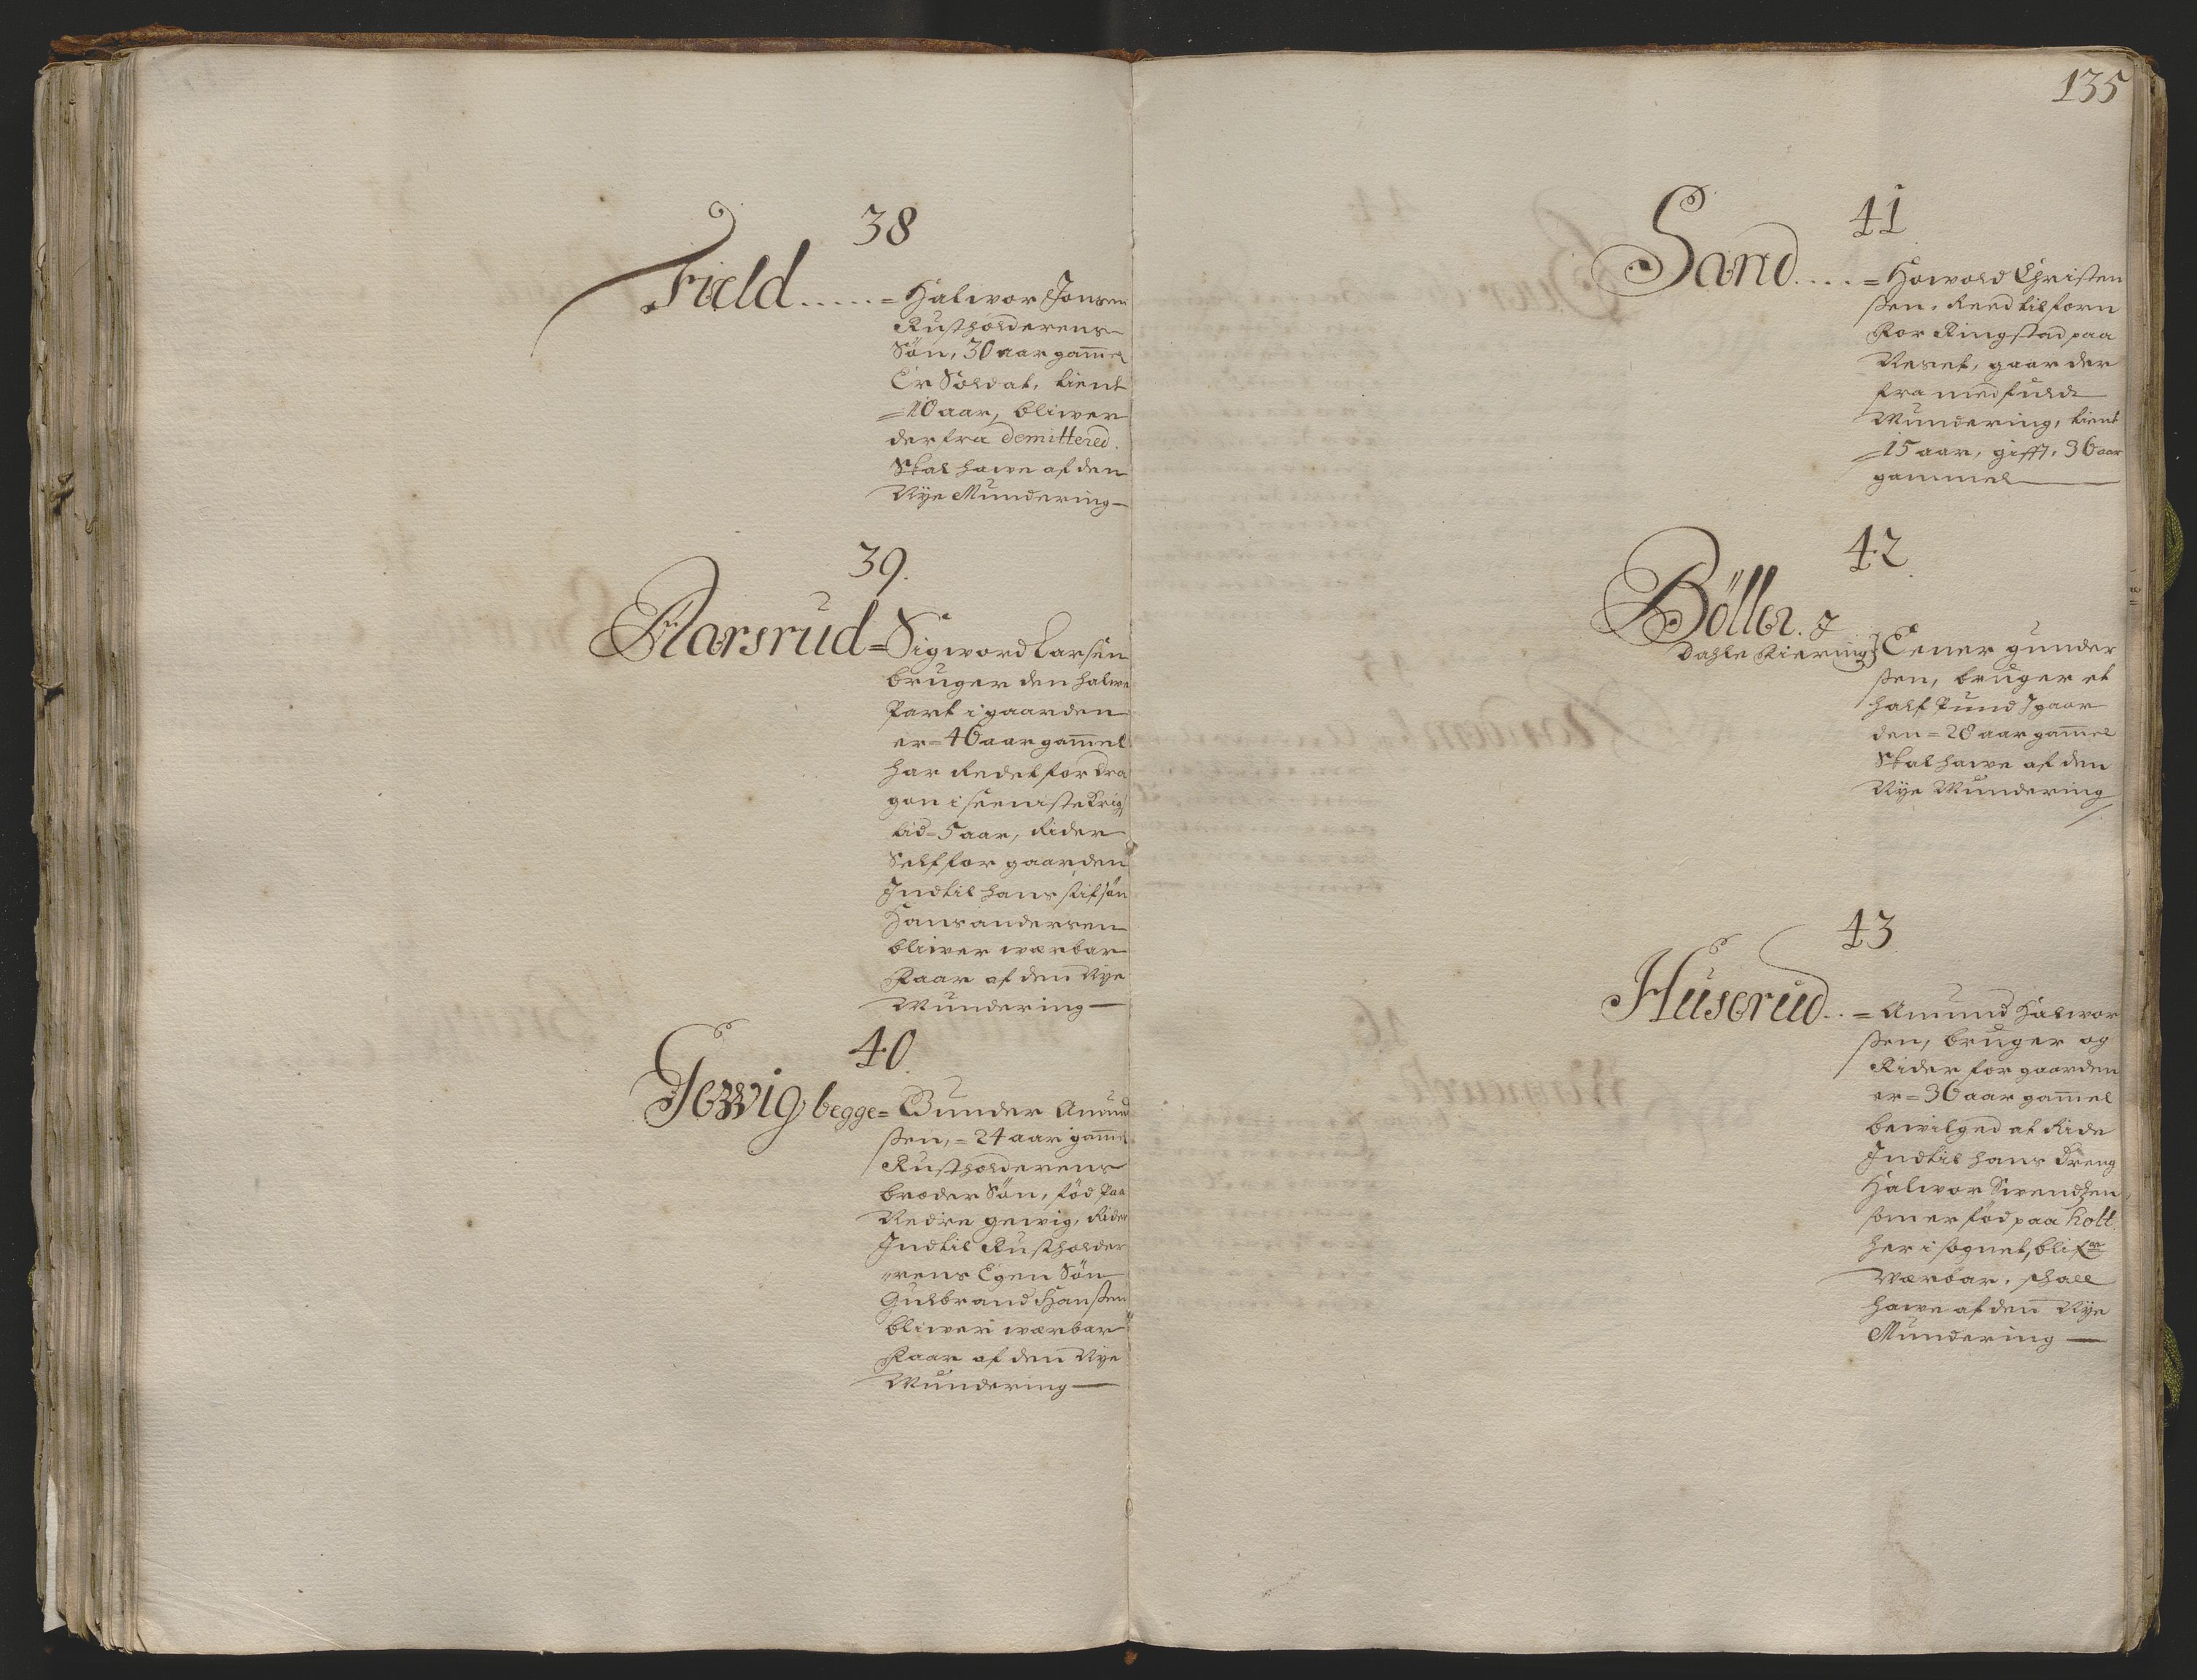 38
Field..... = Halwor Jonsen
Rustholderens
Søn, 30 aar gam̄el
Er Soldat, tient
=10 aar, bliwer
der fra Demittered.
Skal hawe af den
Nÿe Mundering
39.
Aarsrud = Sigword Larsen
bruger den halwe
Part i gaarden
er = 46 aar gam̄el
har Redet for Dra
gon i seeniste Krig
tid = 5 aar, Rider
Self for gaarden
Indtil hans stifsøn
Hans andersen
bliwer werbar
Faar af den Nÿe
Mundering
40.
Gewig, begge = Gunder Amund
ßen, = 24 aar gam̄el
Rustholderens
broder Søn, fød Paa
Nedre gewig, Rider
Indtil Rustholder
erens Egen Søn
Gulbrand Hanßen
bliwer werbar
Faar af den Nÿe
Mundering
135
41
Sand.... = Howold Christen
ßen. Reed tilforn
For Ringstad paa
Neset, gaar der
fra med fuld
Mundering, tient
=15 aar, gifft, 36 aar
gammel
42
Böller. I
Dahle Kiering} Eener gunder
ßen, bruger et
half Pund I gaar
den = 28 aar gam̄el
Skal hawe af den
Nÿe Mundering
43
Huserud.. = Amund Halwor
ßen, bruger og
Rider for gaarden
er = 36 aar gam̄el
bewilged at Ride
Indtil hans Dreng
Halwor Swendßen
som er fød paa Kolt
her i sognet, blifer
Werbar. skall
hawe af den Nÿe
Mundering